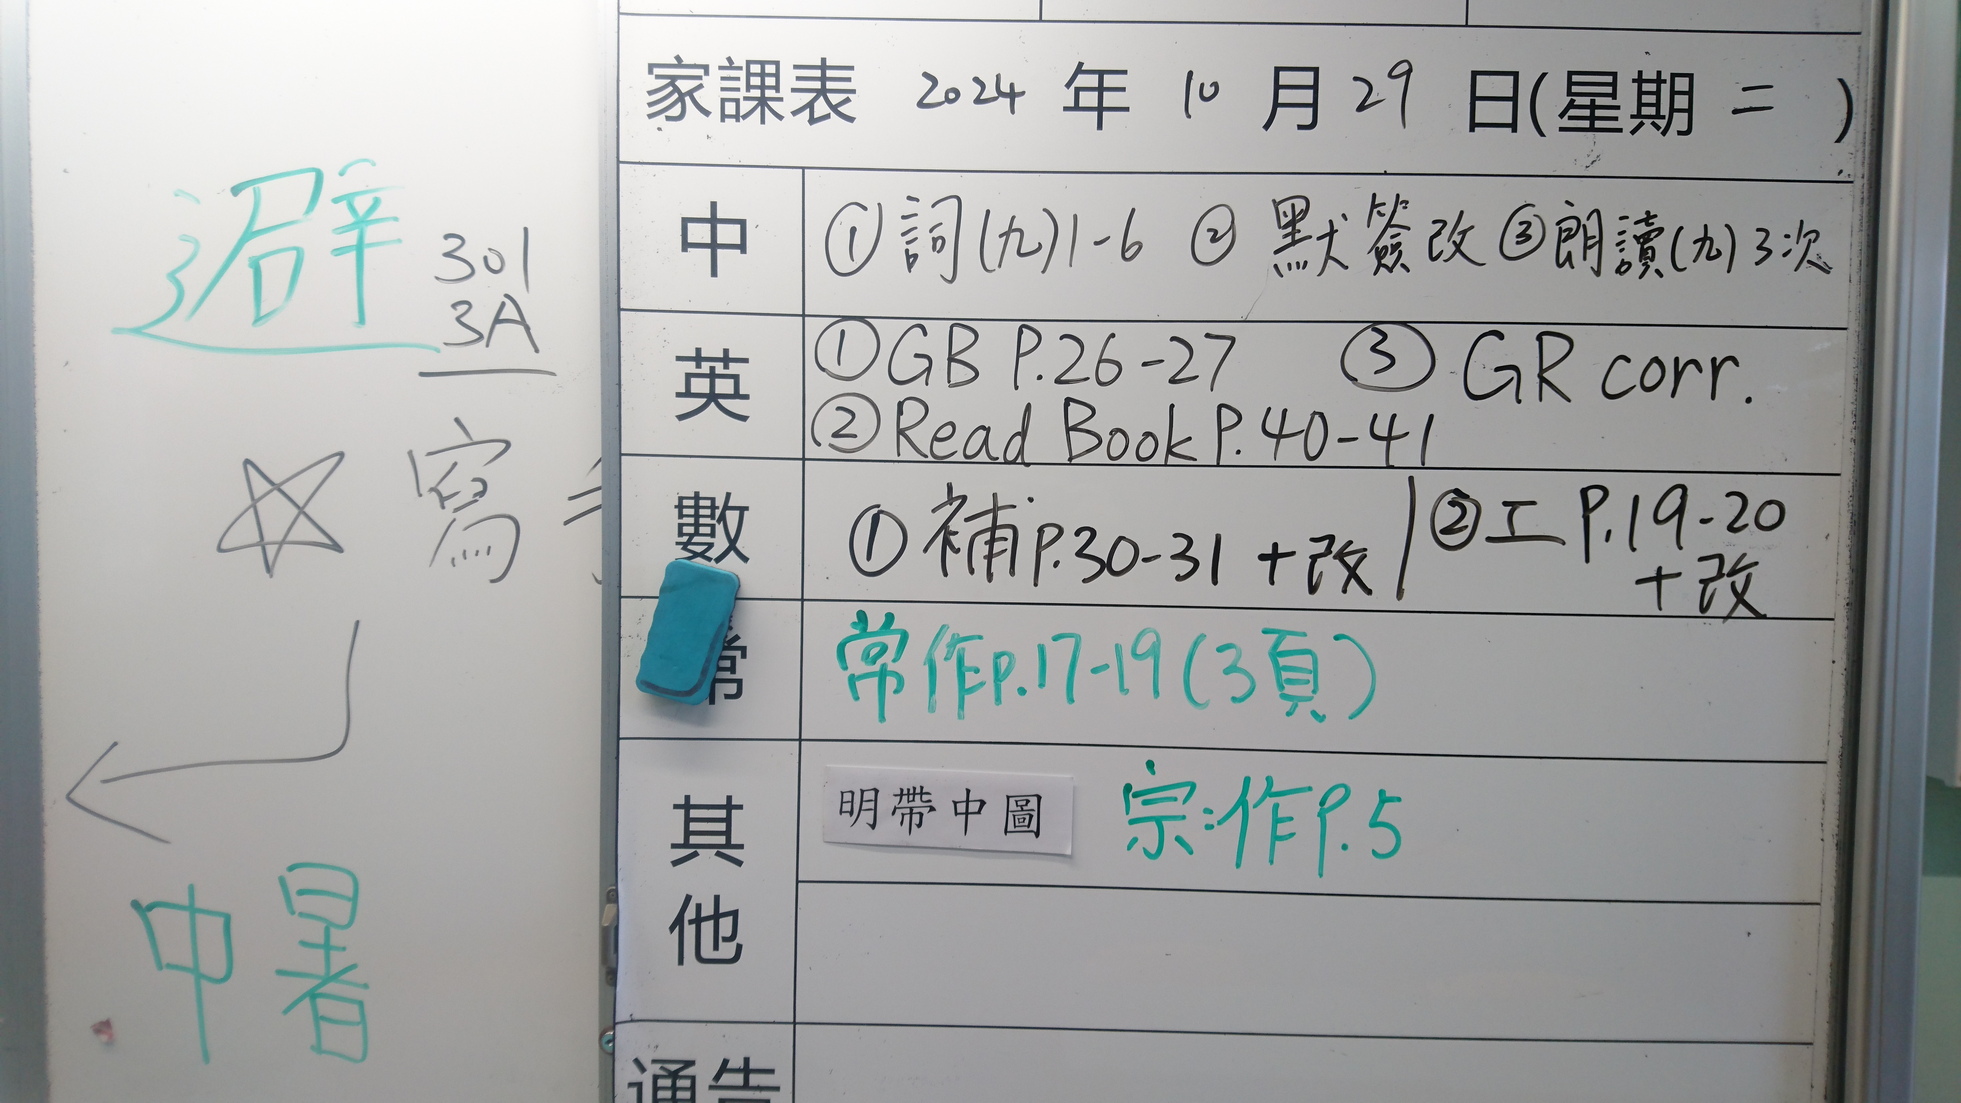 避
301
3A
寫
中暑
家課表 2024 年 10 月 29 日(星期 二 )
中 ①詞(九)1-6 ②默簽改 ③朗讀(九)3次
英 ①GB P.26-27 ③GR corr.
②Read Book P.40-41
數 ①補P.30-31 +改 ②工 P.19-20
+改
常 常作P.17-19(3頁)
其他 明帶中圖 宗:作P.5
通告